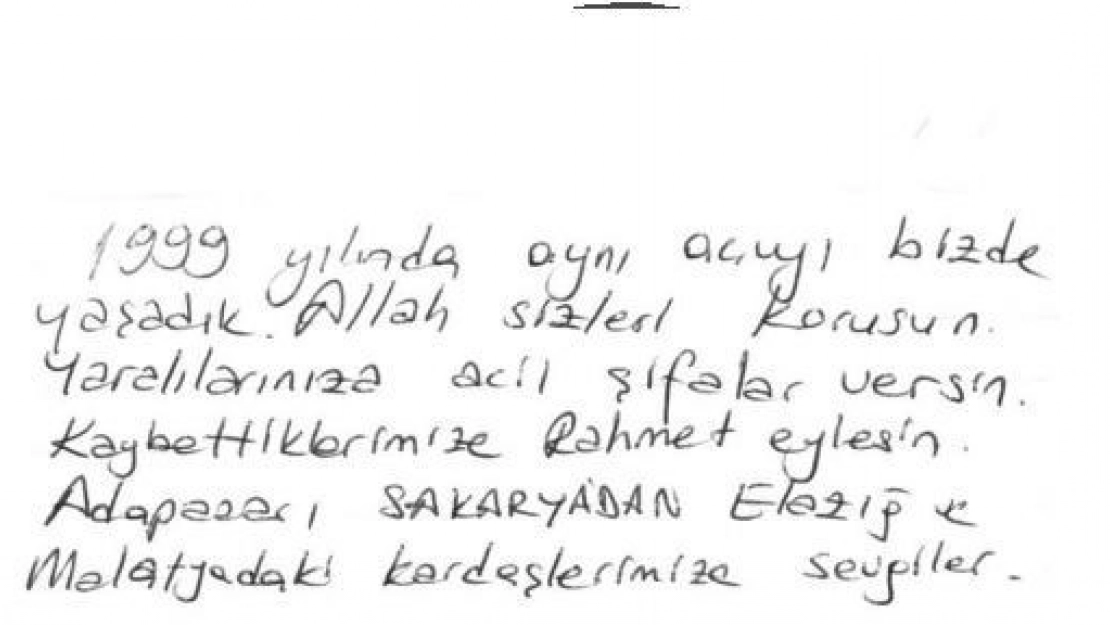 1999 yılında aynı acıyı bizde
yaşadık. Allah sizleri korusun.
Yaralılarınıza acil şifalar versin.
Kaybettiklerimize Rahmet eylesin.
Adapazarı SAKARYA'DAN Elazığ ve
Malatyadaki kardeşlerimize sevgiler.